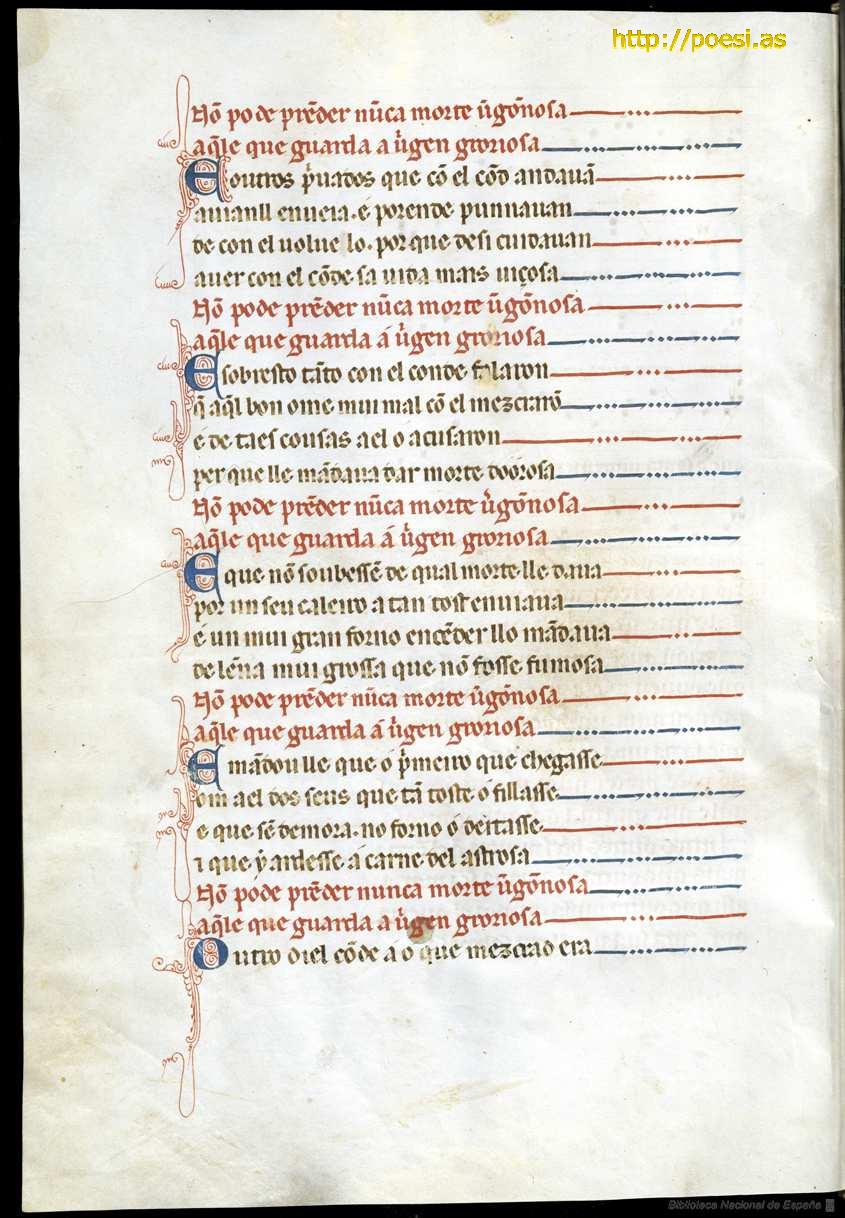 http://poesi.as
Nõ pode prẽder nũca morte ũgõnosa
aq̃le que guarda a ũgen groriosa
E outros p̃uados que cõ el cõd andauã
auianll enueia. e porende punnauan
de con el uoluelo. por que desi cuidauan
auer con el cõde sa uida mais uiçosa
Nõ pode prẽder nũca morte ũgõnosa
aq̃le que guarda á ũgen groriosa
E sobresto tãto con el conde falaron
q̃ aq̃l bon ome mui mal cõ el mezcrarõ
e de taes cousas a el o acusaron
per que lle mãdaua dar morte doorosa
Nõ pode prẽder nũca morte ũgõnosa
aq̃le que guarda á ũgen groriosa
E que nõ soubessẽ de qual morte lle daua
por un seu caleiro a tan tost enuiaua
e un mui gran forno encẽder llo mãdaua
de lẽna mui grossa que nõ fosse fumosa
Nõ pode prẽder nũca morte ũgõnosa
aq̃le que guarda á ũgen groriosa
E mãdoulle que o p̃meiro que chegasse
om a el dos seus que tã toste o fillasse
e que sẽ demora. no forno o deitasse
i que ỹ ardesse a carne del astrosa
Nõ pode prẽder nunca morte ũgõnosa
aq̃le que guarda a ũgen groriosa
Outro di el cõde á o que mezcrad era
Biblioteca Nacional de España